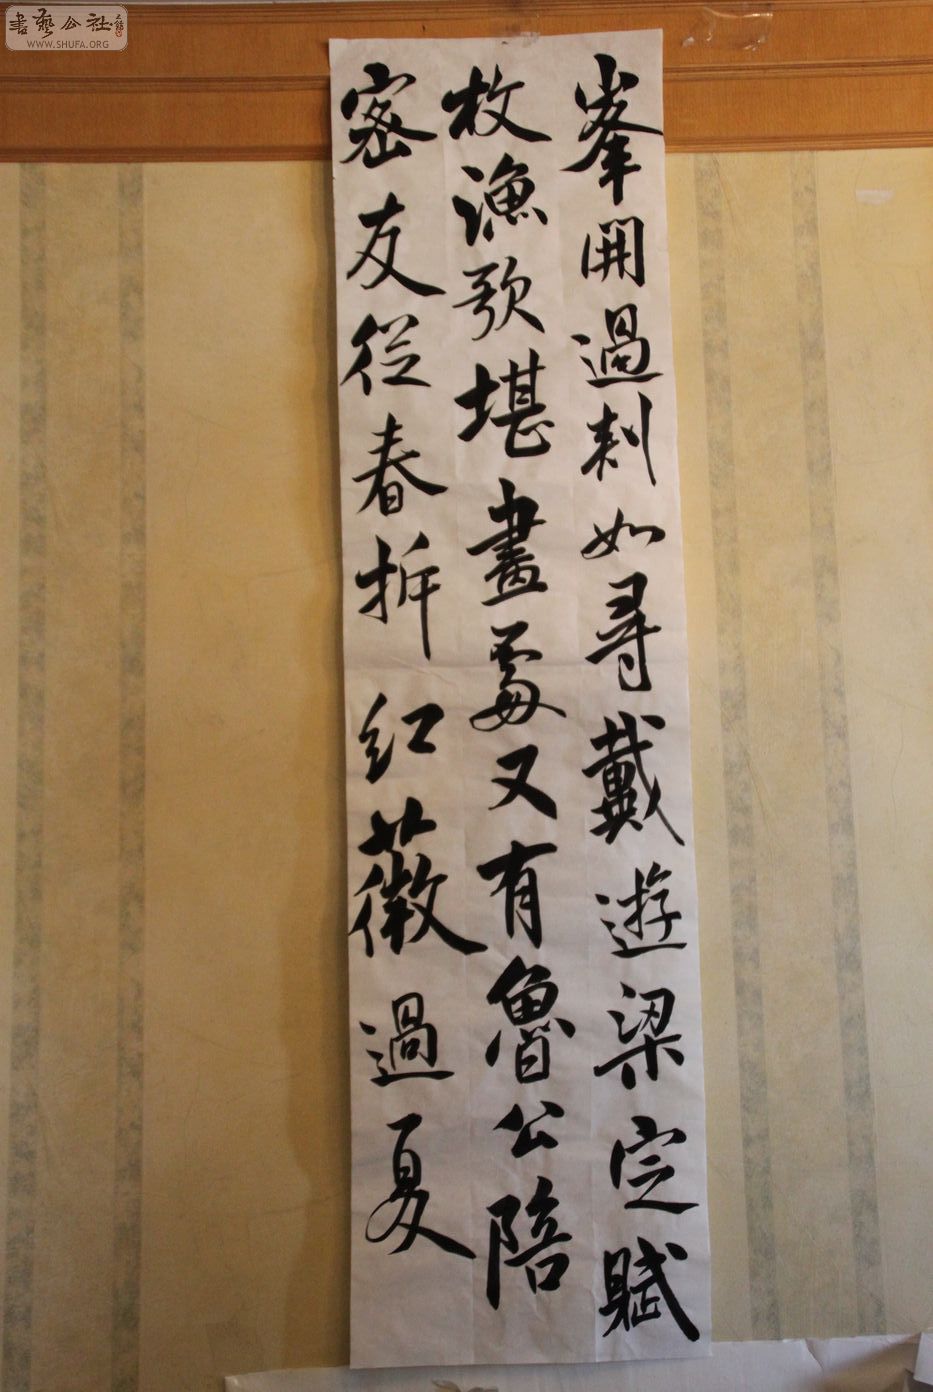 峯開過剡如尋戴遊梁定賦
枚漁歌堪畫處又有魯公陪
密友從春拆紅薇過夏
書藝公社
WWW.SHUFA.ORG